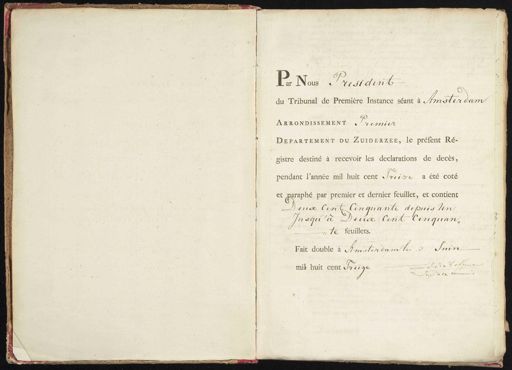 Par Nous President
du Tribunal de Première Instance séant à Amsterdam
Arrondissement Premier
Departement du Zuiderzee, le préſent Ré-
giſtre deſtiné à recevoir les declarations de decès,
pendant l'année mil huit cent Treize a été coté
et paraphé par premier et dernier feuillet, et contient
Deux Cent Cinquante depuis Un
Jusqu'à Deux Cent Cinquan,
te feuillets.
Fait double à Amsterdam le Juin
mil huit cent Treize